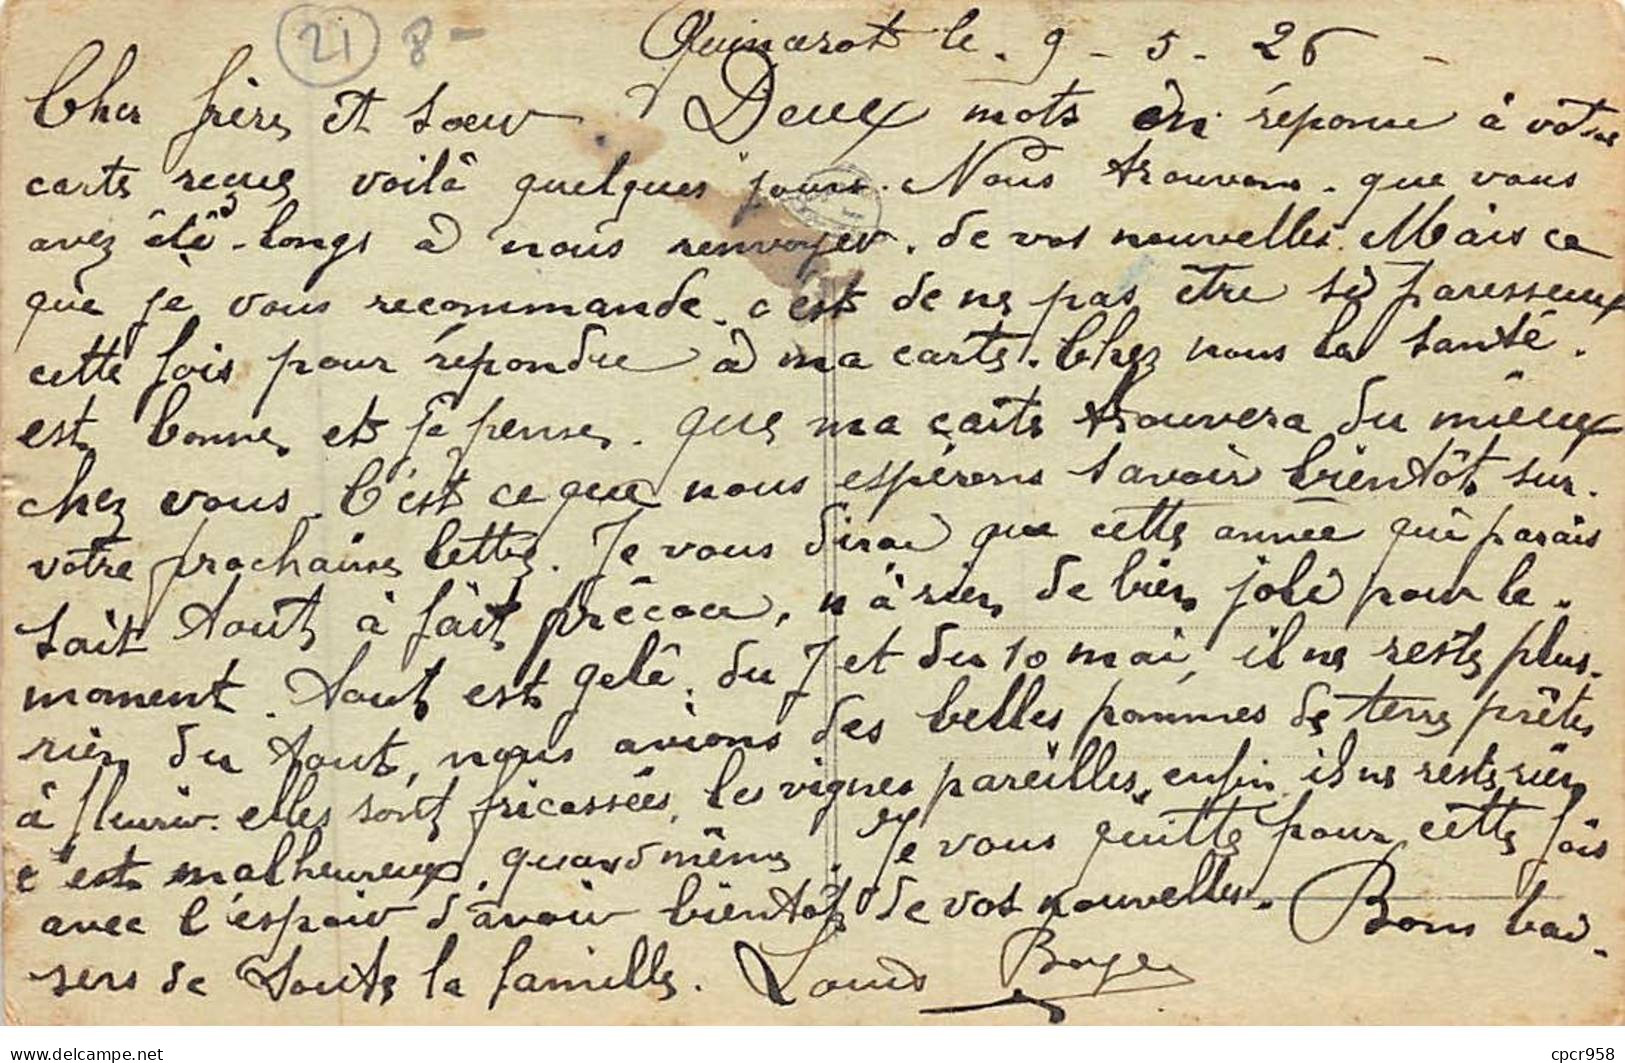 21 8-
Quincerot le. 9 - 5 - 26 -
Cher frère et soeur Deux mots en réponse à votre
carte reçue voilà quelques jours. Nous trouvons. que vous
avez été longs à nous renvoyer. de vos nouvelles. Mais ce
que je vous recommande. c'est de ne pas être si paresseux
cette fois pour répondre à ma carte. Chez nous la santé.
est bonne et je pense. que ma carte trouvera du mieux
chez vous. C'est ce que nous espérons savoir bientôt sur.
votre prochaine lettre. Je vous dirai que cette année qui parais
sait tout à fait précoce, n'a rien de bien joli pour le.
moment. tout est gelé. du 7 et du 10 mai, il ne reste plus.
rien du tout, nous avions des belles pommes de terre prêtes
à fleurir. elles sont fricassées, les vignes pareilles, enfin il ne reste rien
c'est malheureux, quand même. Je vous quitte pour cette fois
avec l'espoir d'avoir bientôt de vos nouvelles. Bons bai-
sers de toute la famille. Louis Boyer
cpcr958